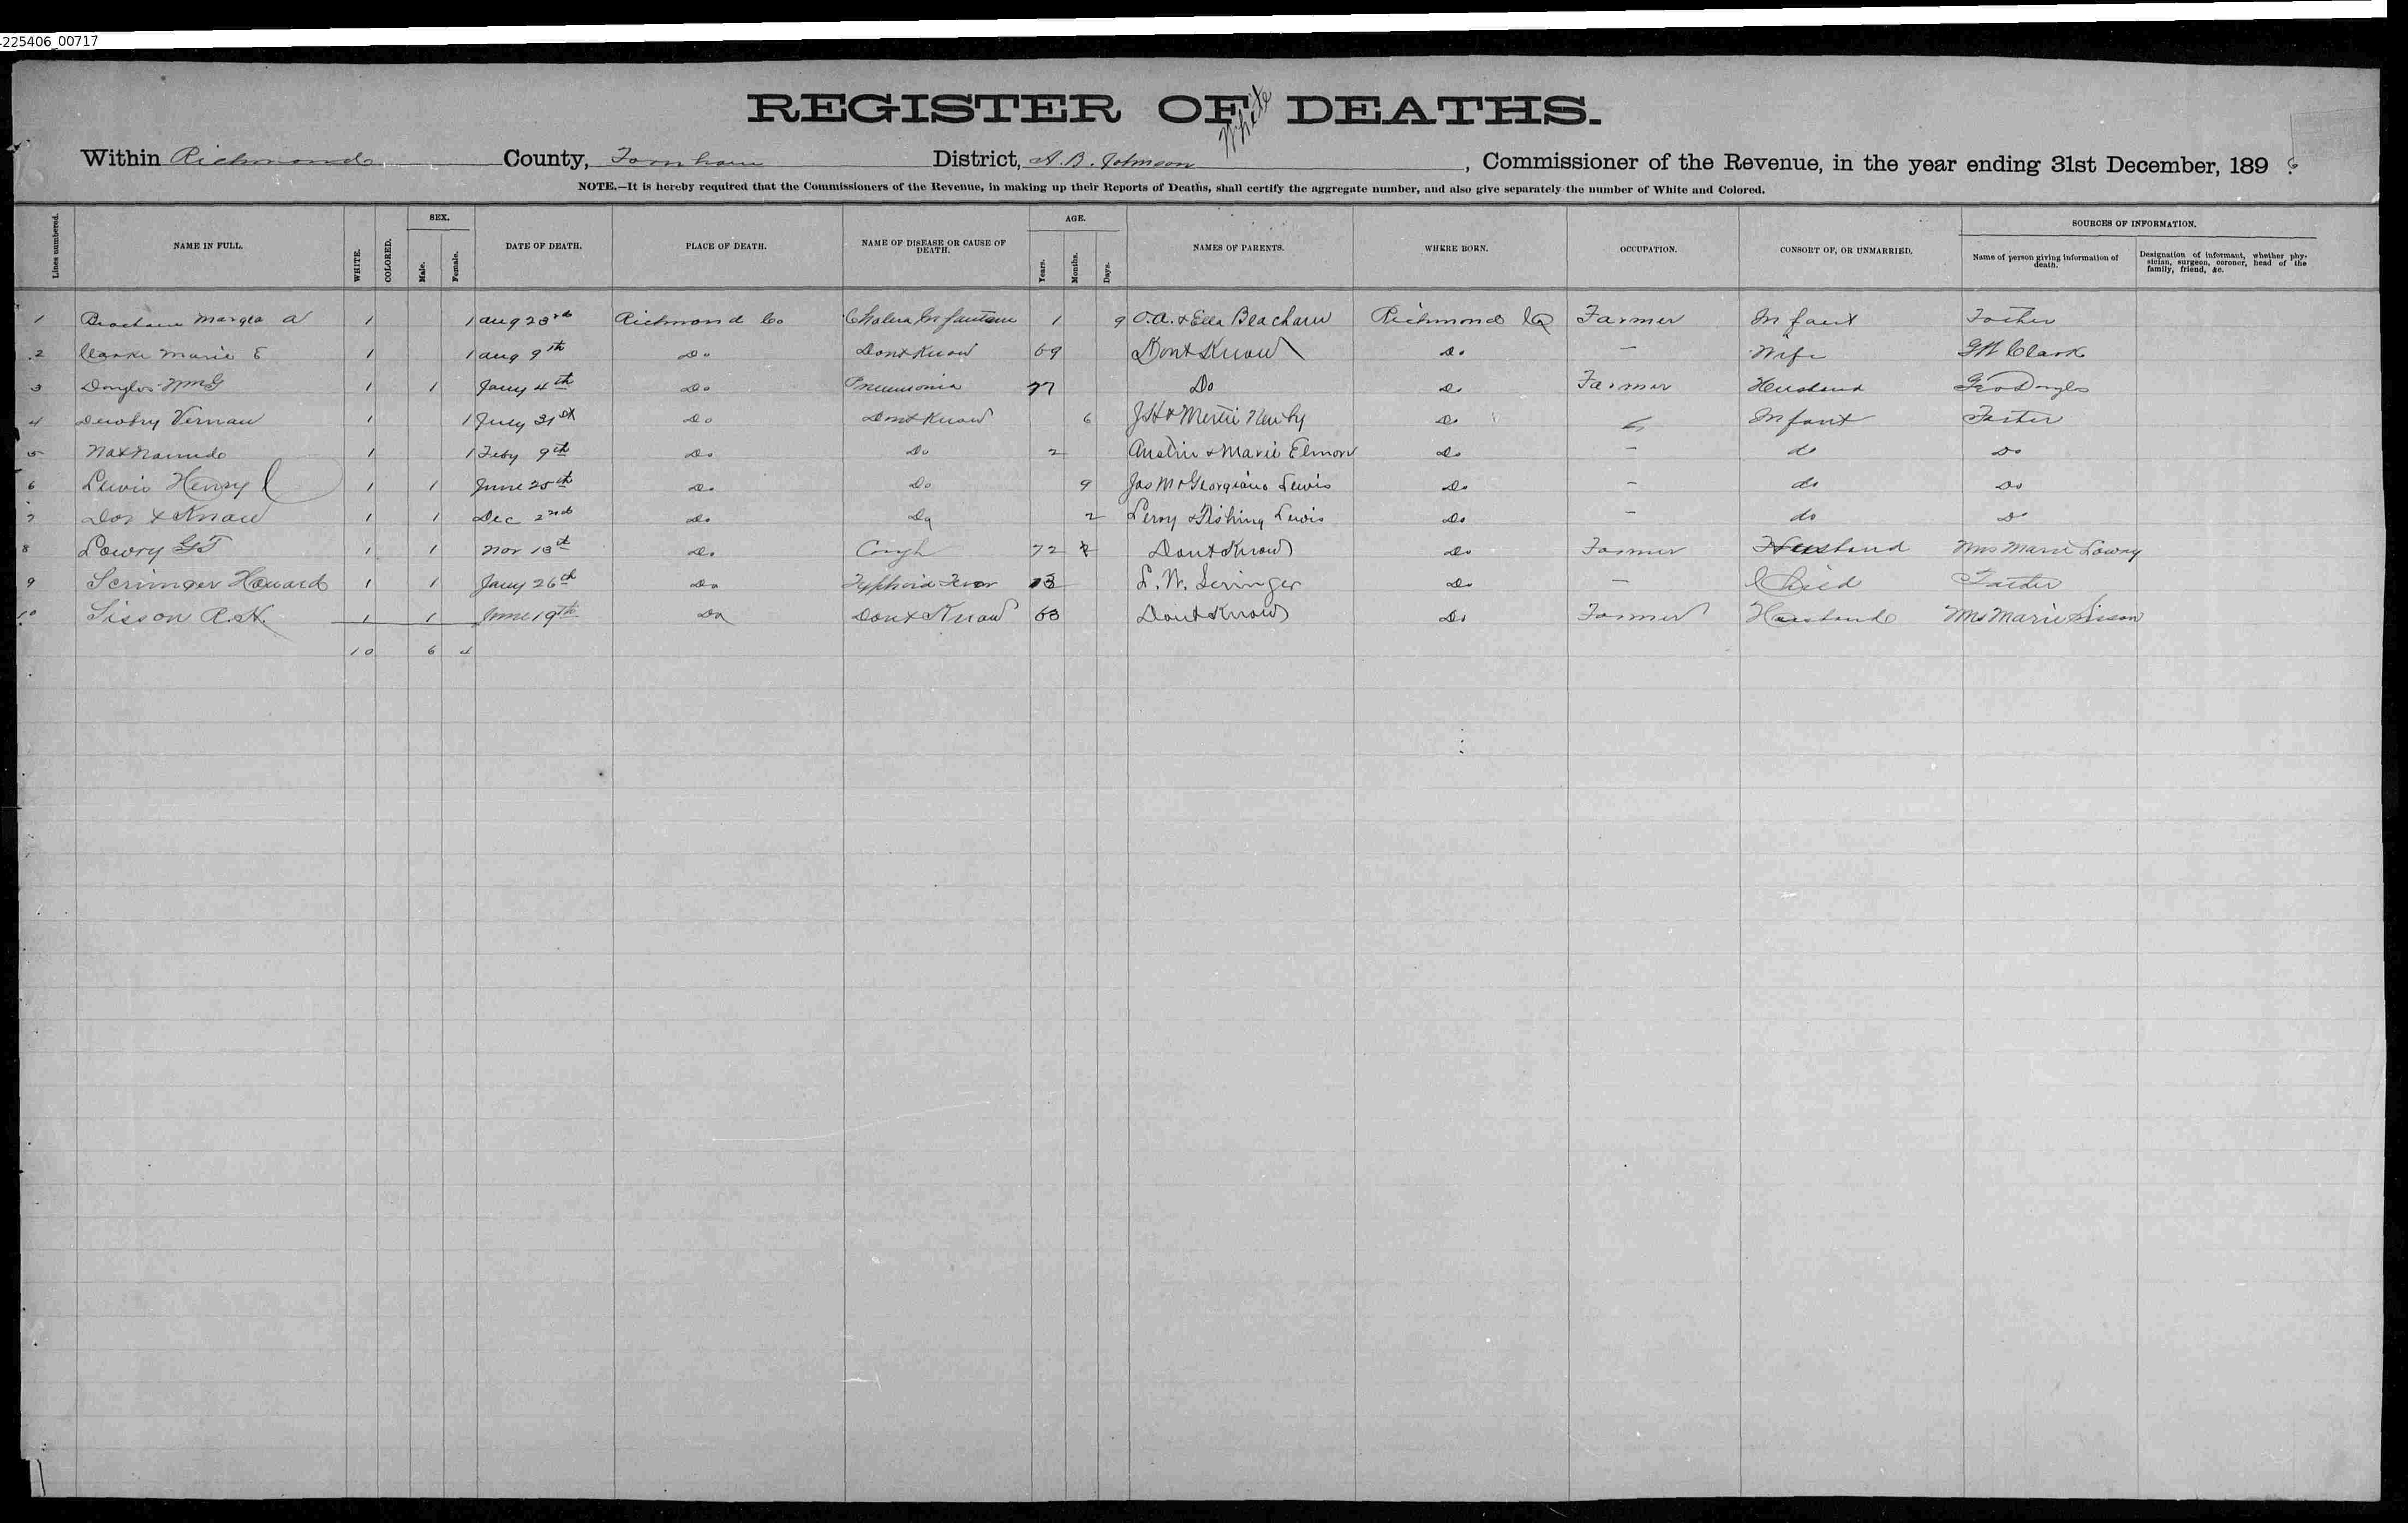 225406_00717
REGISTER OF DEATHS.
White
Within Richmond County, Farnham District, A. B. Johnson, Commissioner of the Revenue, in the year ending 31st December, 1896
NOTE.—It is hereby required that the Commissioners of the Revenue, in making up their Reports of Deaths, shall certify the aggregate number, and also give separately the number of White and Colored.
Lines numbered. NAME IN FULL. WHITE. COLORED. SEX. Male. Female. DATE OF DEATH. PLACE OF DEATH. NAME OF DISEASE OR CAUSE OF DEATH. AGE. Years. Months. Days. NAMES OF PARENTS. WHERE BORN. OCCUPATION. CONSORT OF, OR UNMARRIED. SOURCES OF INFORMATION. Name of person giving information of death. Designation of informant, whether physician, surgeon, coroner, head of the family, friend, &c.
1 Beacham a 1 1 Aug 23rd Richmond Co Cholera Infantum 1 9 O.A. & Ella Beacham Richmond Co Farmer Infant Father
2 Clarke Marie E 1 1 Aug 9th Do Dont Know 69 Dont Know Do — Wife Clark
3 Douglas Wm G 1 1 Jany 4th Do Pneumonia 77 Do Do Farmer Husband Geo Douglas
4 Vernan 1 1 31st Do Dont Know 6 J H & Mertie Newby Do Infant Father
5 Not Named 1 1 Feby 9th Do Do 2 Austin & Marie Elmon Do — do Do
6 Lewis Henry 1 1 June 25th Do Do 9 Jas M & Georgiana Lewis Do — do Do
7 Dont Know 1 1 Dec 2nd Do Do 2 Leroy & Lewis Do — do Do
8 Lowry G T 1 1 Nov 13th Do Cough 72 Dont Know Do Farmer Husband Mrs Marie Lowry
9 Scrimger Howard 1 1 Jany 26th Do Typhoid Fever 13 L. W. Do — Child Father
10 Sisson R. H. 1 1 June 19th Do Dont Know 63 Dont Know Do Farmer Husband Mrs Marie Sisson
10 6 4